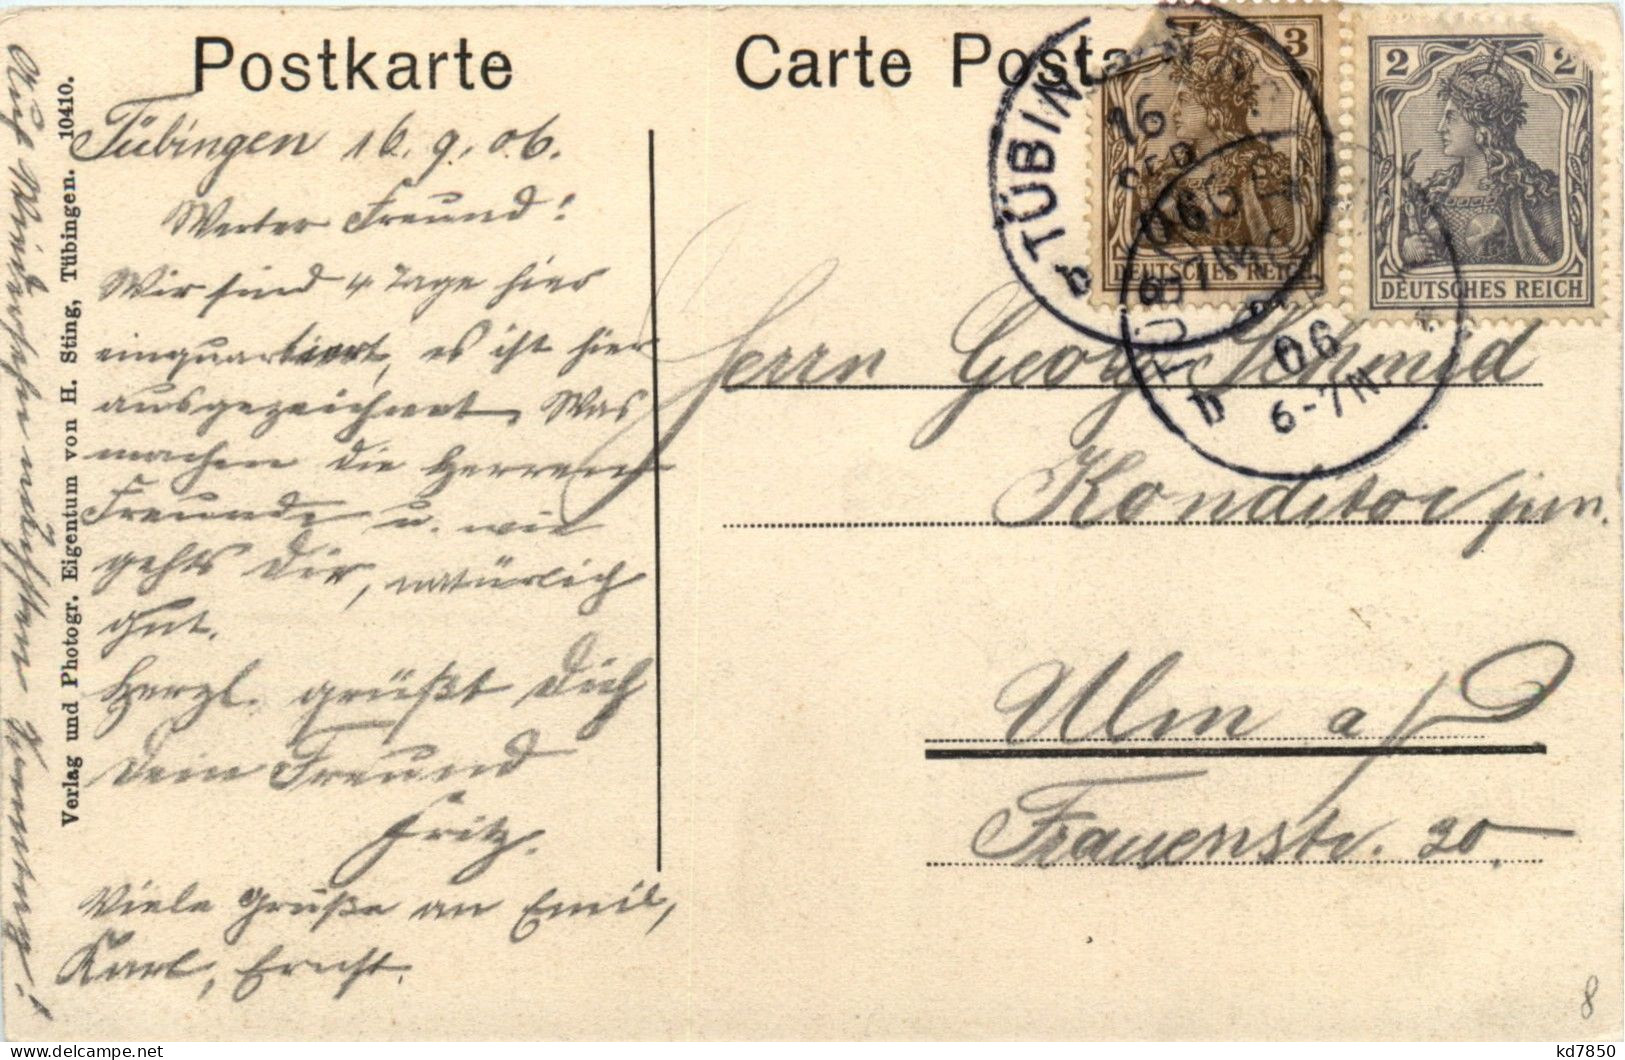 Postkarte
Carte Posta
Tübingen 16. 9. 06.
Werter Freund!
Wir sind 4 Tage hier
einquartiert, es ist hier
ausgezeichnet. Was
machen die Herren
Freunde u. wie
gehts Dir, natürlich
gut.
Herzl. grüßt Dich
Dein Freund
Fritz.
Viele Grüße an Emil,
Karl, Ernst.
Auf Wiedersehen nächsten Sonntag!
Verlag und Photogr. Eigentum von H. Sting, Tübingen. 10410.
3
DEUTSCHES REICH
2 2
DEUTSCHES REICH
TÜBINGEN
16
SEP
06
b
TÜB
06
6-7N.
b
Herrn Georg Schmid
Konditor jun.
Ulm a/D
Frauenstr. 30.
8
kd7850